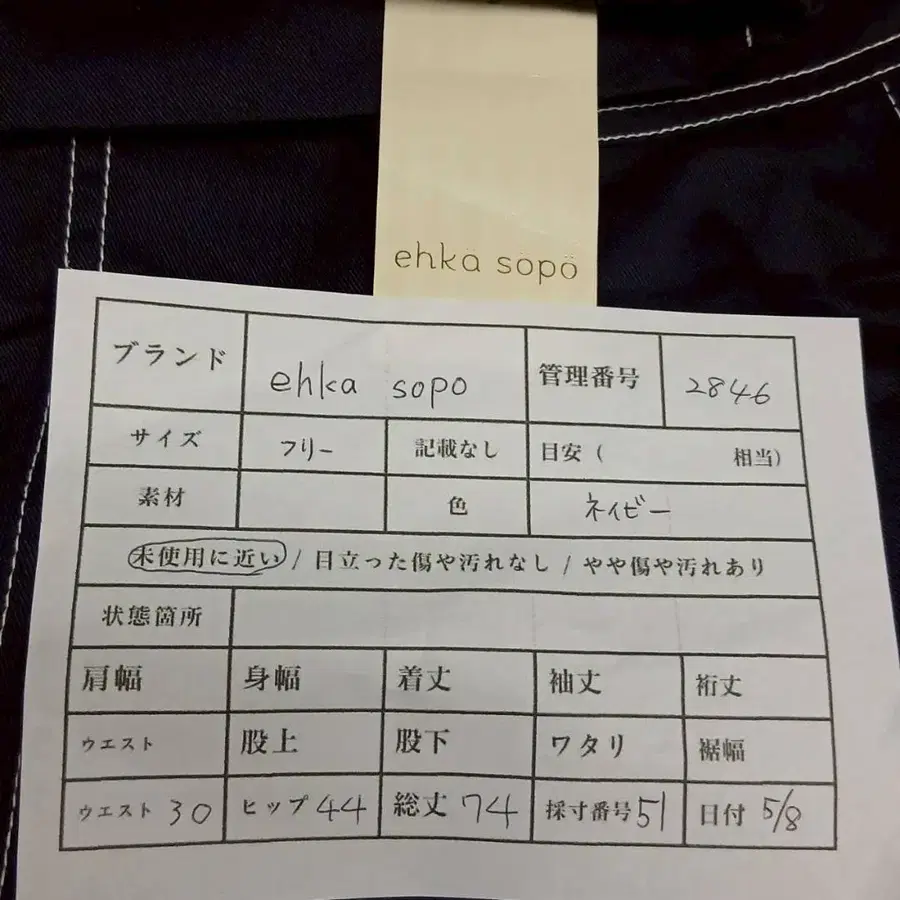 ehkä söpö
ブランド ehka sopo 管理番号 2846
サイズ フリー 記載なし 目安 ( 相当)
素材 色 ネイビー
未使用に近い / 目立った傷や汚れなし / やや傷や汚れあり
状態箇所
肩幅 身幅 着丈 袖丈 裄丈
ウエスト 股上 股下 ワタリ 裾幅
ウエスト 30 ヒップ 44 総丈 74 採寸番号 51 日付 5/8